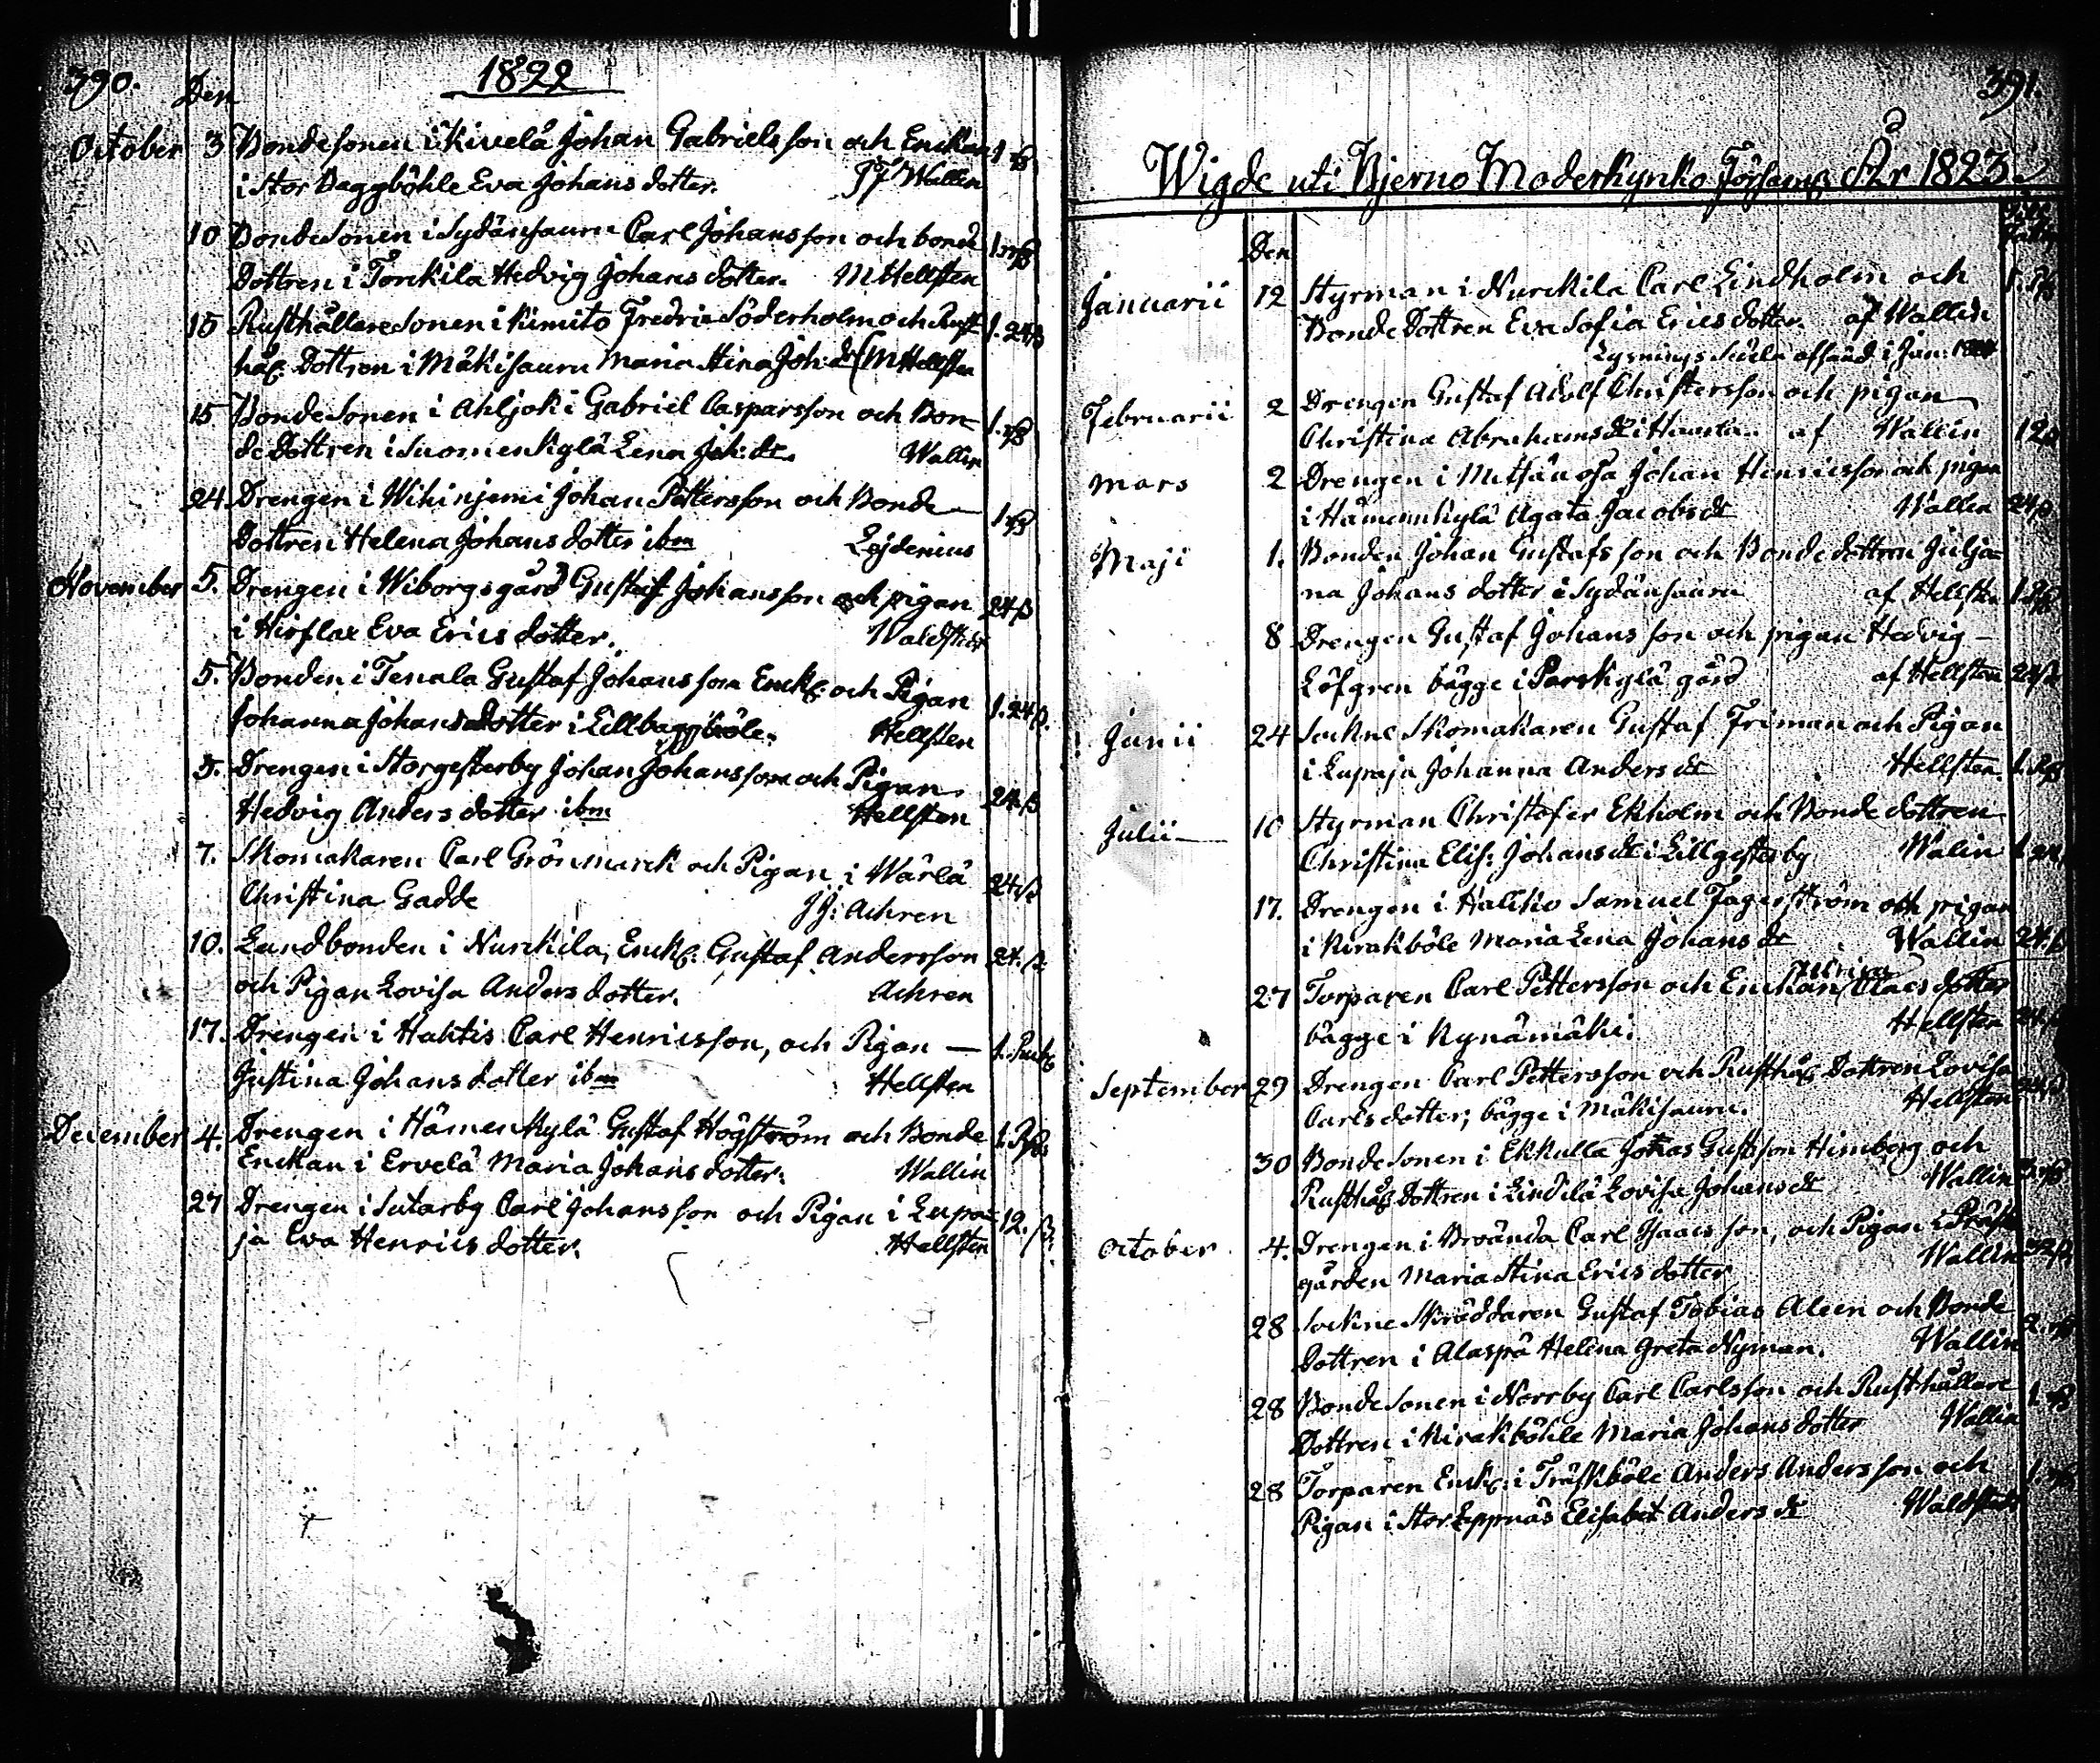 390.
Den 1822
October 3 Bondesonen i Kivelä Johan Gabrielsson och Enckan
i Stor Baggböhle Eva Johans dotter. Wallin
10 BondeSonen i Sydänsauru Carl Johansson och bonde
Dottren i Torkila Hedvig Johans dotter. M Hellsten
15 RusthållareSonen i Kimito Fredric Söderholm och Rust- 1. 24 β
hål: Dottren i Mäkisauru Maria Stina Joh: dr M Hellsten
15 BondeSonen i Ahljoki Gabriel Casparsson och Bon-
de Dottren i Suomenkylä Lena Joh: dr. Wallin
24 Drengen i Wihinjemi Johan Pettersson och Bonde
Dottren Helena Johans dotter ibm
November 5. Drengen i Wiborgsgård Gustaf Johansson och pigan 24 β
i Hirslax Eva Erics dotter. Waldstedt
5. Bonden i Tenala Gustaf Johansson Enckl: och Pigan 1. 24 β.
Johanna Johansdotter i Lillbaggböle. Hellsten
5. Drengen i Storgesterby Johan Johansson och Pigan 24 β
Hedvig Anders dotter ibm Hellsten
7. Skomakaren Carl Grönmarck och Pigan i Wärlä 24 β
Christina Gadde Achren
10. Landbonden i Nurckila, Enckl: Gustaf Andersson 24. β
och Pigan Lovisa Anders dotter. Achren
17. Drengen i Hahtis Carl Henricsson, och Pigan —
Justina Johans dotter ibm Hellsten
December 4. Drengen i Hämenkylä Gustaf Högström och Bonde
Enckan i Ervelä Maria Johans dotter. Wallin
27 Drengen i Sutarby Carl Johansson och Pigan i Lupa- 12. β.
ja Eva Henrics dotter. Hellsten
391.
Wigde uti Bjerno Moderkyrko Församl: År 1823.
Den
Januarii 12 Styrman i Nurckila Carl Lindholm och
Bonde Dottren Eva Sofia Erics dotter. af Wallin
Lysnings Sedla afsänd i Jan:
Februarii 2 Drengen Gustaf Adolf Christersson och pigan
Christina Abrahams dr i af Wallin 12 β
Mars 2 Drengen i Johan Henricsson och pigan
i Hämenkylä Agata Jacobs dr Wallin 24 β
Maji 1. Bonden Johan Gustafsson och Bonde dottren Julja-
na Johans dotter i Sydänsauru af Hellsten
8 Drengen Gustaf Johansson och pigan Hedvig —
Löfgren bägge i Parskylä gård af Hellsten 24 β
Junii 24 Sockne Skomakaren Gustaf Friman och Pigan
i Lupaja Johanna Anders dr Hellsten.
Julii 10 Styrman Christofer Ekholm och Bonde dottren
Christina Elis: Johans dr i Lillgesterby Walin 1 24
17. Drengen i Halicko Samuel Fagerström och pigan
i Kirakböle Maria Lena Johans dr Wallin 24. β
27 Torparen Carl Pettersson och Enckan Ulrica Claes dotter
bägge i Kynämäki. Hellsten
September 29 Drengen Carl Pettersson och Rusthål: Dottren Lovisa
Carls dotter; bägge i Mäkisauru. Hellsten
30 BondeSonen i Ekkulla Gustsson Himberg och
Rusthål: Dottren i Lindilä Lovisa Johans dr Wallin
October 4. Drengen i Broända Carl Isaacsson, och Pigan i Präst-
gården Maria Stina Erics dotter Wallin 32 β
28 Sockne Skräddaren Gustaf Tobias Aleen och Bonde
Dottren i Alaspä Helena Greta Nyman. Wallin
28 BondeSonen i Norrby Carl Carlsson och Rusthållare
Dottren i Kirakböhle Maria Johans dotter Wallin
28 Torparen Enckl: i Träskböle Anders Andersson och
Pigan i Stor Leppnäs Elisabet Anders dr Waldstedt